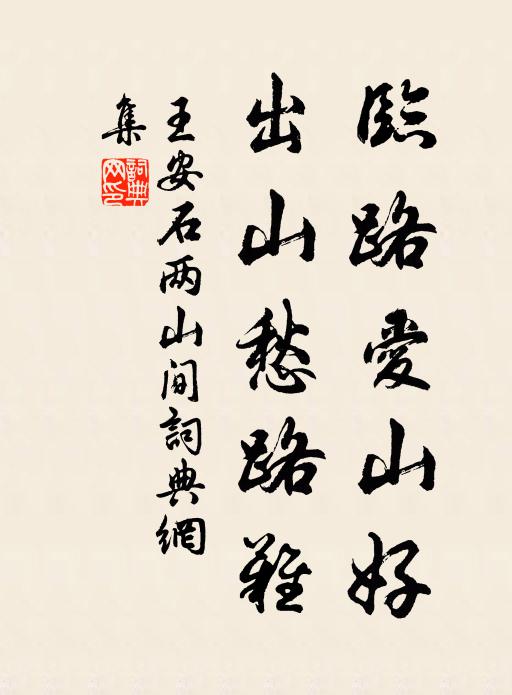 臨路愛山好
出山愁路難
王安石两山间詞典網
集
詞典網印